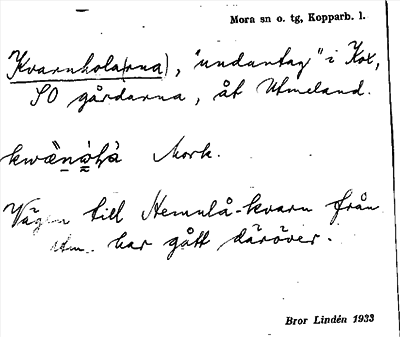 Mora sn o. tg, Kopparb. l.
Kvarnhola(rna), "undantag" i Kot,
SO gårdarna, åt Utmeland.
kwæ̀ṇo̤ḷà Mork.
Vägen till Hemulå-kvarn från
Utm. har gått däröver.
Bror Lindén 1933